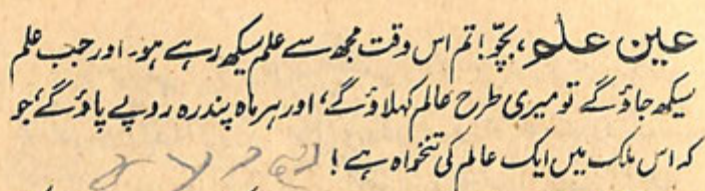 عین علم، بچّو! تم اس وقت مجھ سے علم سیکھ رہے ہو۔ اور جب علم
سیکھ جاؤ گے تو میری طرح عالم کہلاؤ گے، اور ہر ماہ پندرہ روپے پاؤ گے، جو
کہ اس ملک میں ایک عالم کی تنخواہ ہے!